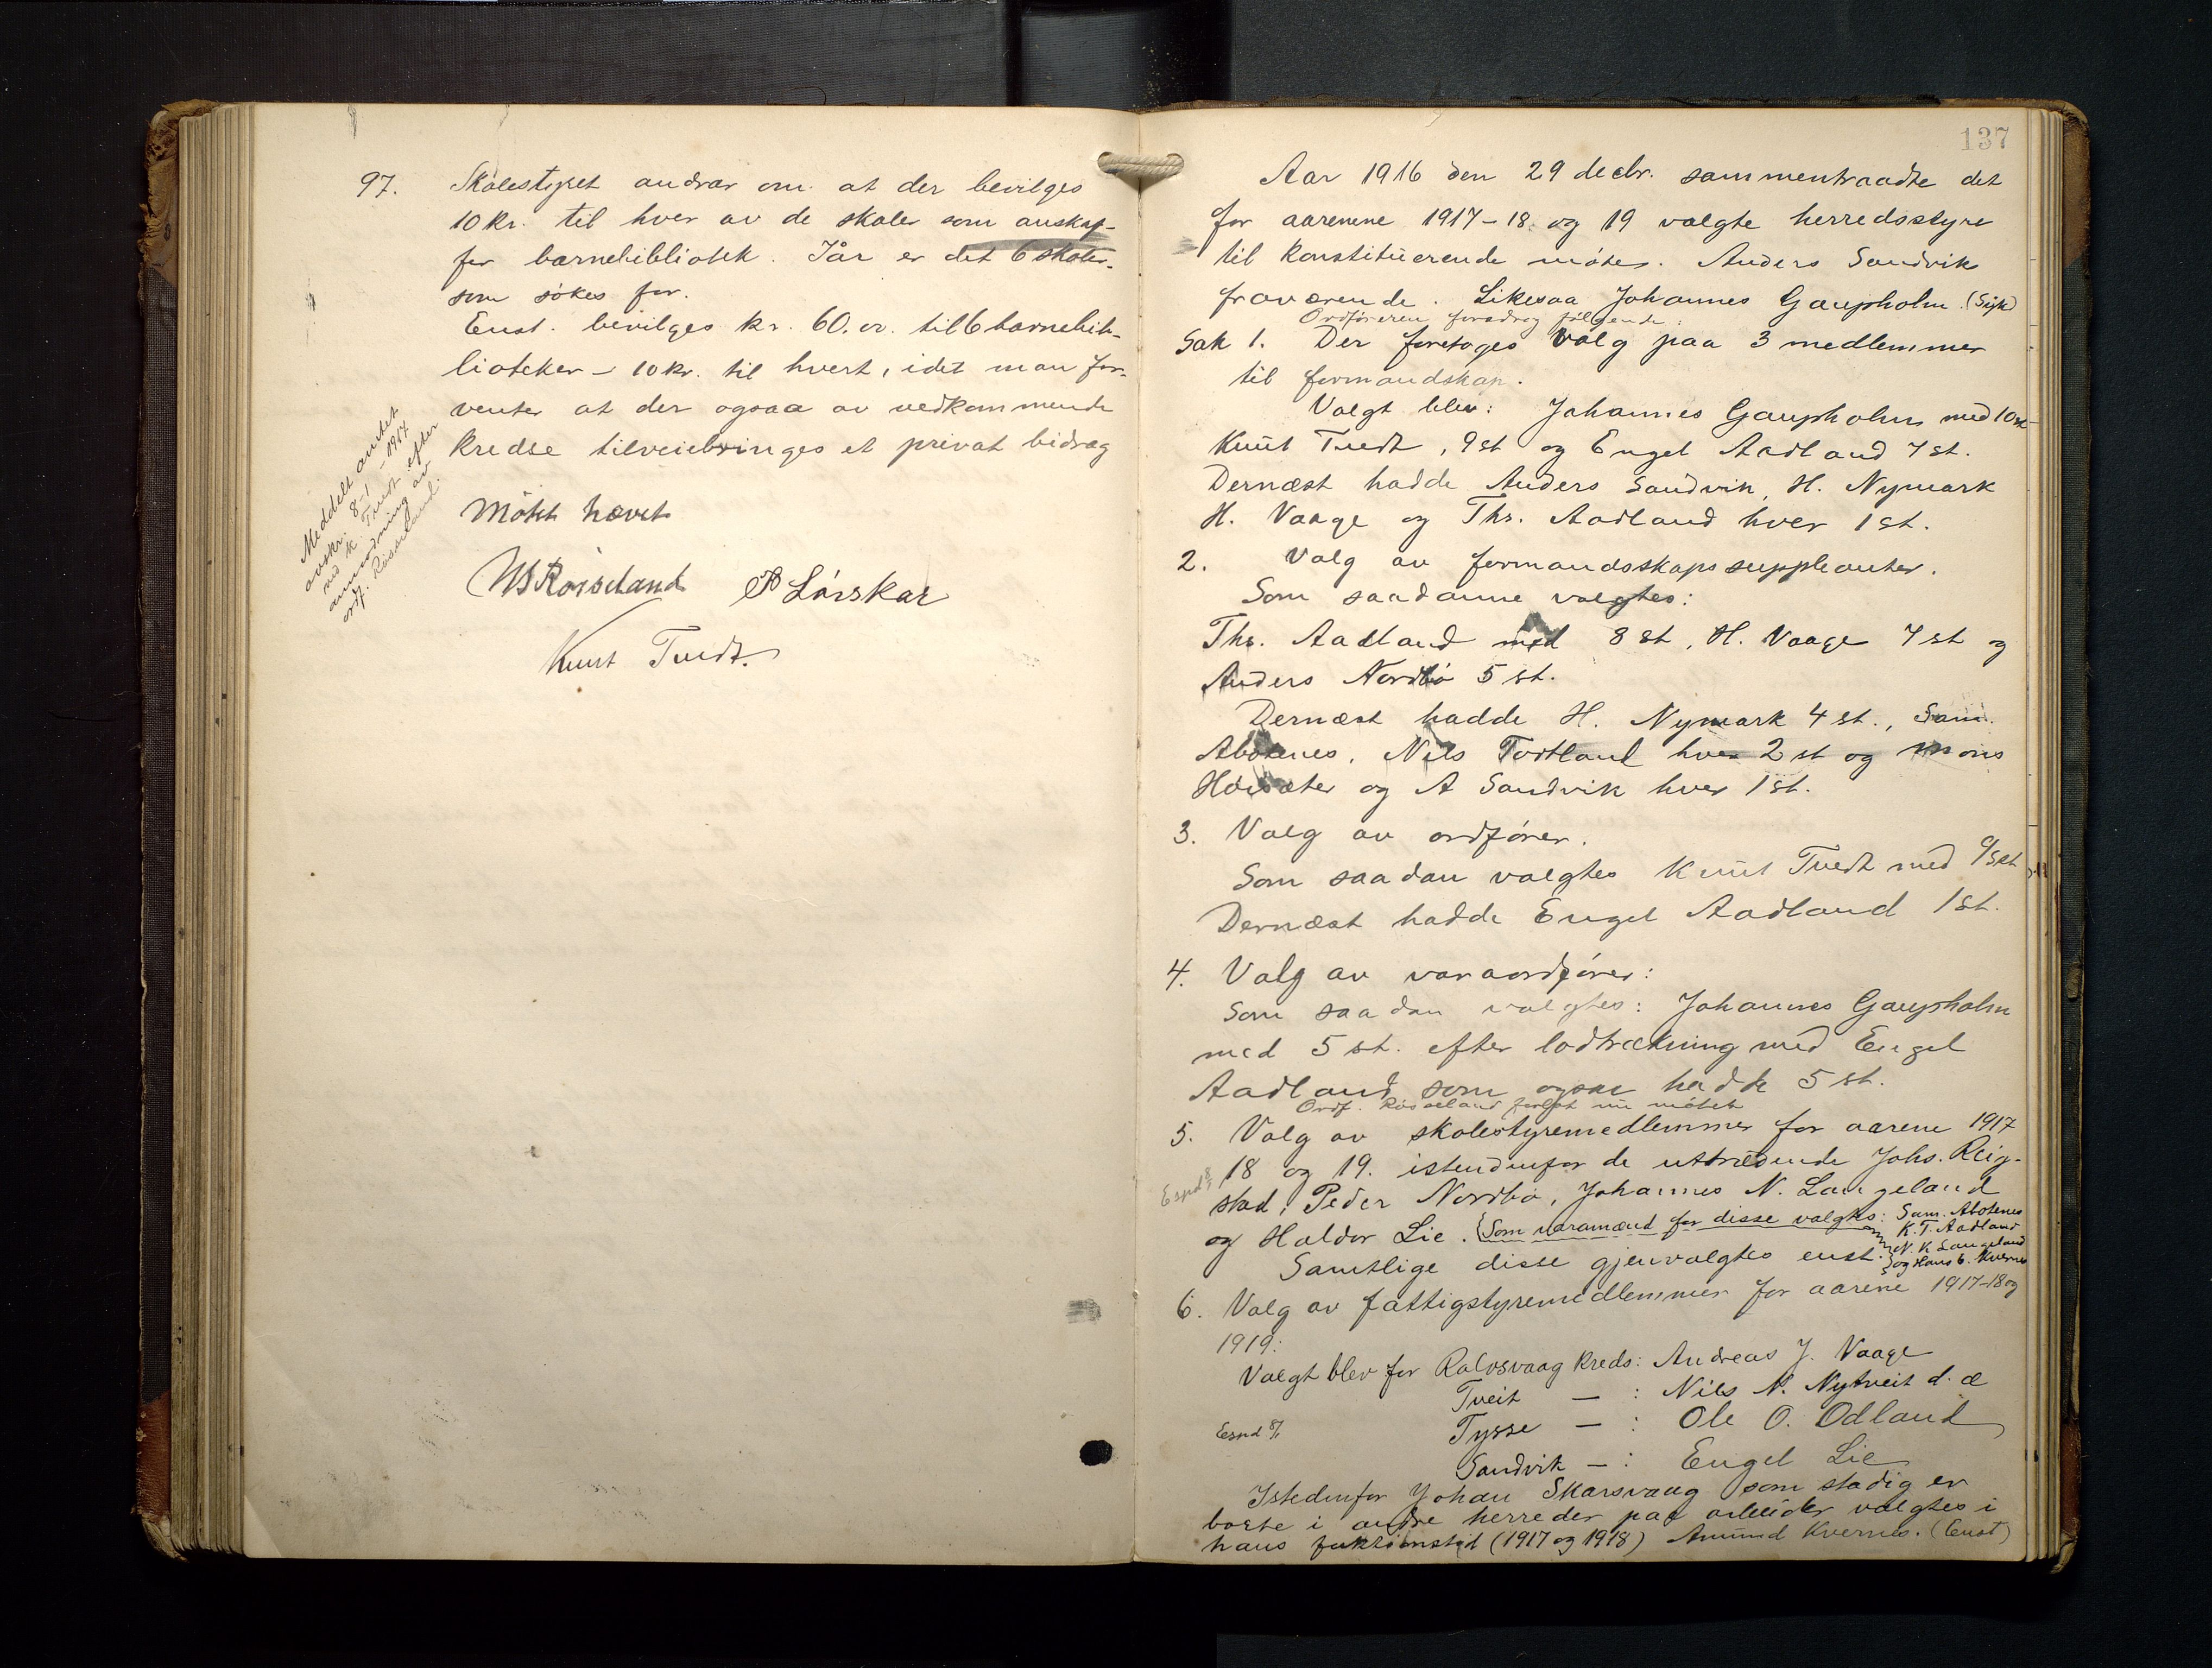 97. Skolestyret andrar om at der bevilges
10 kr. til hver av de skoler som anskaf-
fer barnebibliotek. Iår er det 6 skoler.
som søkes for.
Enst. bevilges kr. 60.00. til 6 barnebib-
lioteker – 10 kr. til hvert, idet man for-
venter at der ogsaa av vedkommende
kredse tilveiebringes et privat bidrag
Meddelt anvist
avskr. 8-1-1917
ved K. Tvedt efter
anmodning av
ordf. Røsseland.
Møtet hævet
Røiseland Lørskar
Knut Tvedt.
137
Aar 1916 den 29 decbr. sammentraadte det
for aarenene 1917-18. og 19 valgte herredsstyre
til konstituerende møter. Anders Sandvik
fraværende. Likesaa Johannes Gaupholm. (Syk)
Ordføreren foredrog følgende:
Sak 1. Der foretoges valg paa 3 medlemmer
til formandskap.
Valgt blev: Johannes Gaupholm med 10 st
Knut Tvedt, 9 st og Engel Aadland 7 st.
Dernæst hadde Anders Sandvik, H. Nymark
H. Vaage og Ths. Aadland hver 1 st.
2. Valg av formandsskapssuppleanter.
Som saadanne valgtes:
Ths. Aadland med 8 st, H. Vaage 7 st og
Anders Nordbø 5 st.
Dernæst hadde H. Nymark 4 st., Sam.
Abotenes, Nils Tortland hver 2 st og Mons
Høisæter og A Sandvik hver 1 st.
3. Valg av ordfører.
Som saadan valgtes Knut Tvedt med 9 st
Dernæst hadde Engel Aadland 1 st.
4. Valg av varaordfører:
Som saadan valgtes: Johannes Gaupholm
med 5 st. efter lodtrækning med Engel
Aadland som ogsaa hadde 5 st.
Ordf. Røsseland forlot nu møtet
5. Valg av skolestyremedlemmer for aarene 1917
18 og 19. istedenfor de uttrædende Johs. Reig-
Espd 8/1
stad, Peder Nordbø, Johannes N. Langeland
og Haldor Lie. {Som varamænd for disse valgtes: Sam. Abotenes
K. T. Aadland
N. K Langeland
og Hans b. Kvernes
Samtlige disse gjenvalgtes enst.
6. Valg av fattigstyremedlemmer for aarene 1917-18 og
1919:
Valgt blev for Ralvsvaag kreds: Andreas J. Vaage
Tveit — : Nils N. Nytveit d. æ
Espd 8/1 Tysse — : Ole O. Odland
Sandvik — : Engel Lie
Istedenfor Johan Skarsvaag som stadig er
borte i andre herreder paa arbeider valgtes i
hans funktionstid (1917 og 1918) Amund Kvernes. (Enst)